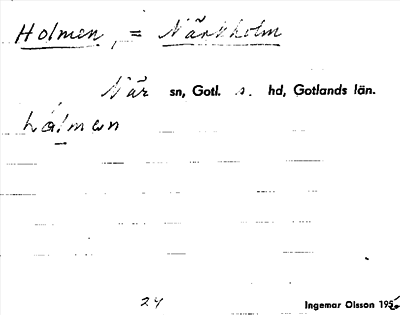 Holmen, = Närkholm
När sn, Gotl. s. hd, Gotlands län.
hólmen
24
Ingemar Olsson 195